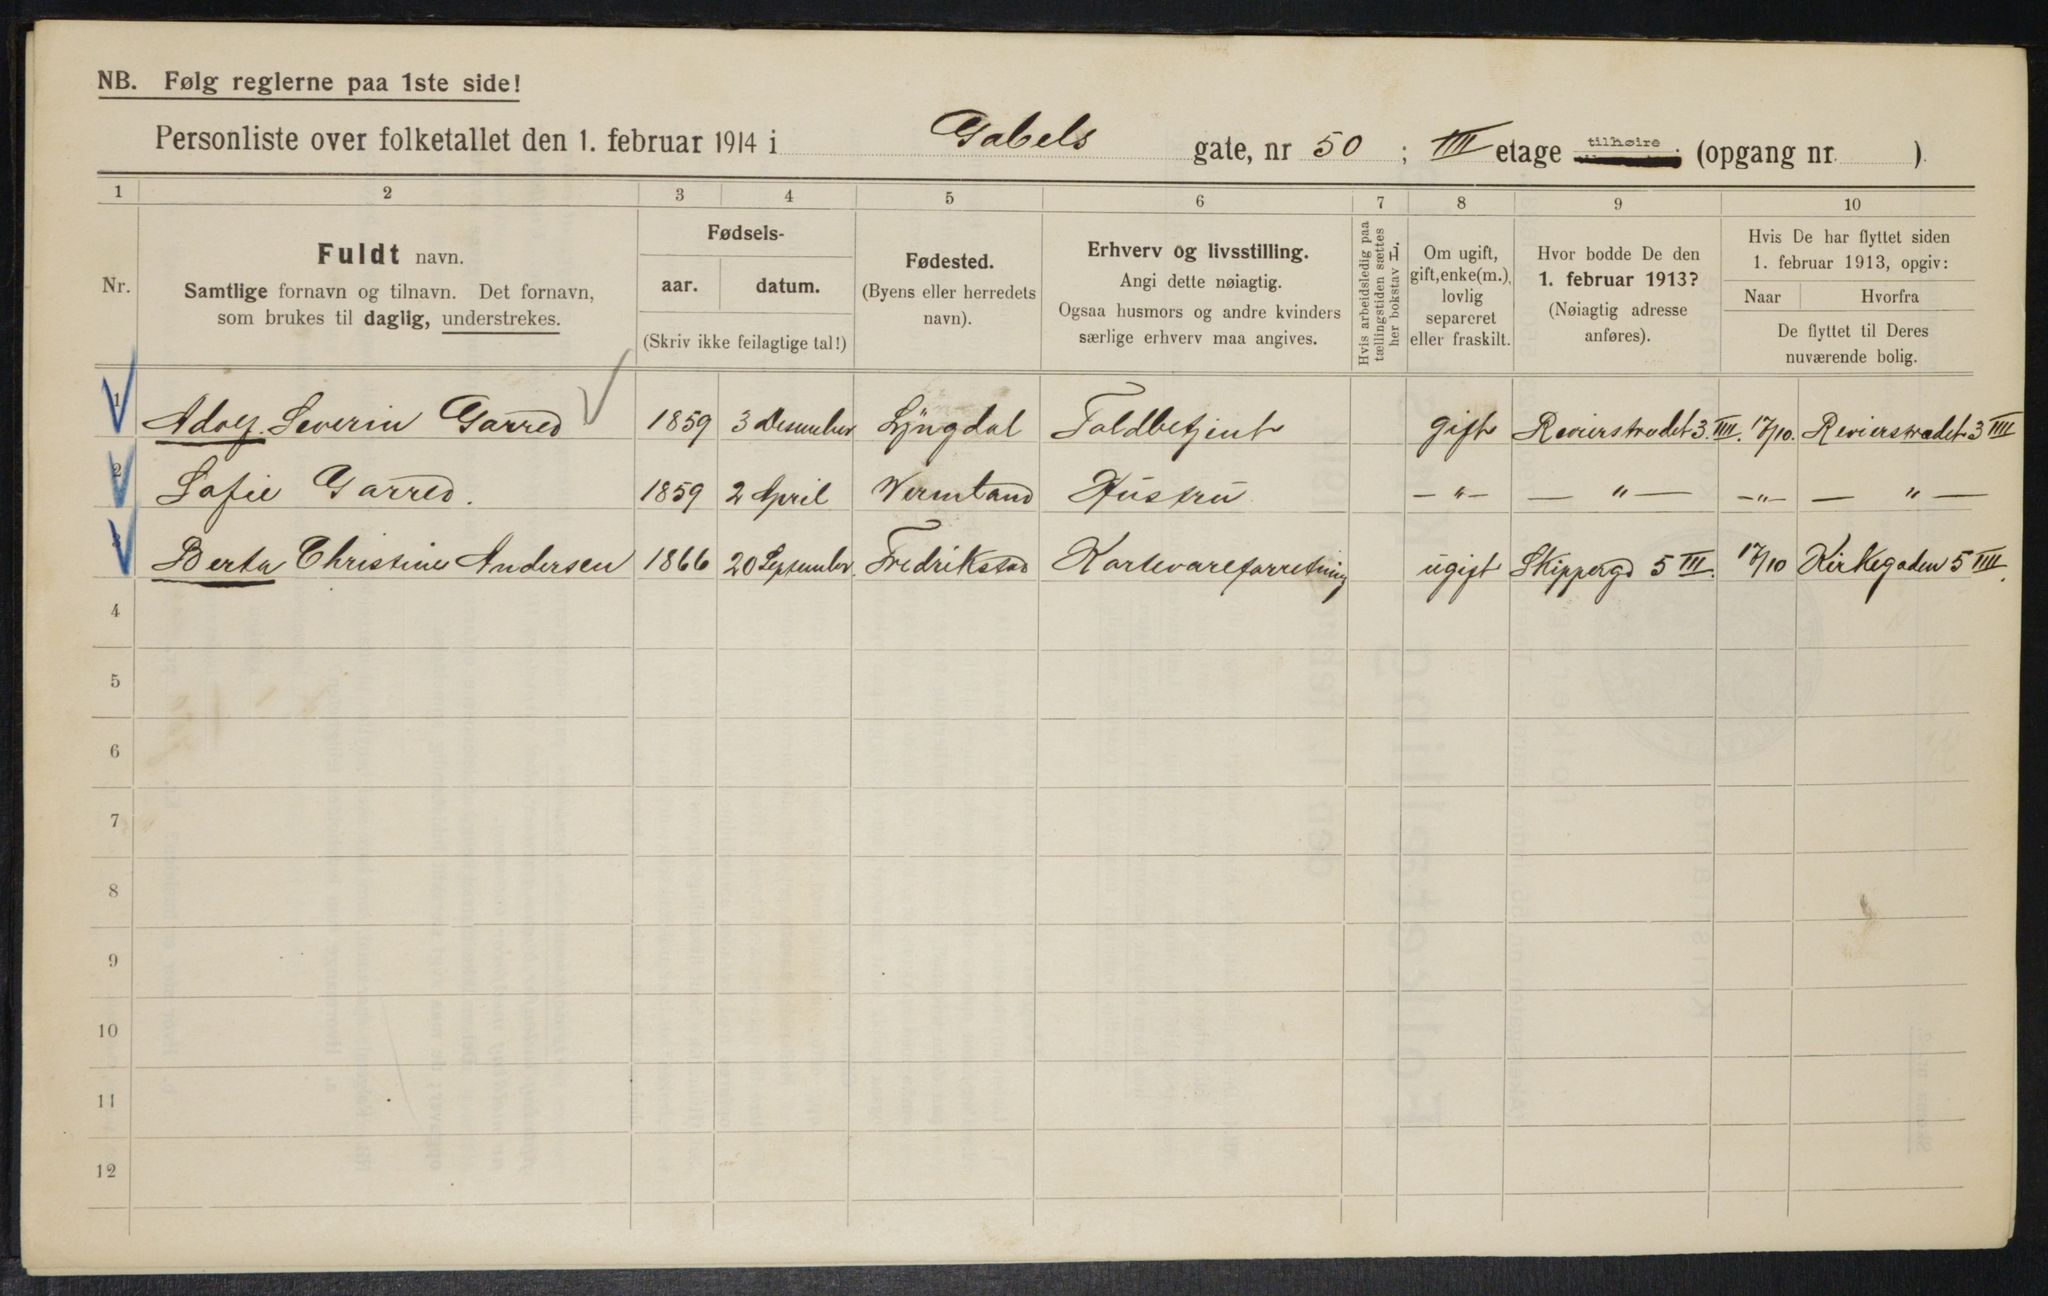 NB. Følg reglerne paa 1ste side!
Personliste over folketallet den 1. februar 1914 i Gabels gate, nr 50 ; IIII etage tilhøire (opgang nr. ).
1 2 3 4 5 6 7 8 9 10
Nr.
Fuldt navn.
Samtlige fornavn og tilnavn. Det fornavn,
som brukes til daglig, understrekes.
Fødsels-
aar. datum.
(Skriv ikke feilagtige tal!)
Fødested.
(Byens eller herredets
navn).
Erhverv og livsstilling.
Angi dette nøiagtig.
Ogsaa husmors og andre kvinders
særlige erhverv maa angives.
Hvis arbeidsledig paa
tællingstiden sættes
her bokstav L.
Om ugift,
gift, enke(m.),
lovlig
separeret
eller fraskilt.
Hvor bodde De den
1. februar 1913?
(Nøiagtig adresse
anføres).
Hvis De har flyttet siden
1. februar 1913, opgiv:
Naar Hvorfra
De flyttet til Deres
nuværende bolig.
1 Adolf Severin Garred 1859 3 Desember Lyngdal Toldbetjent gift Revierstrædet 3. IIII. 17/10. Revierstrædet 3 IIII
2 Sofie Garred. 1859 2 April Wermland Hustru — " — — " — — " — — " —
3 Berta Christine Andersen 1866 20 September Fredrikstad Kortevareforretning ugift Skippergd 5 III. 17/10 Kirkegaden 5 IIII.
4
5
6
7
8
9
10
11
12